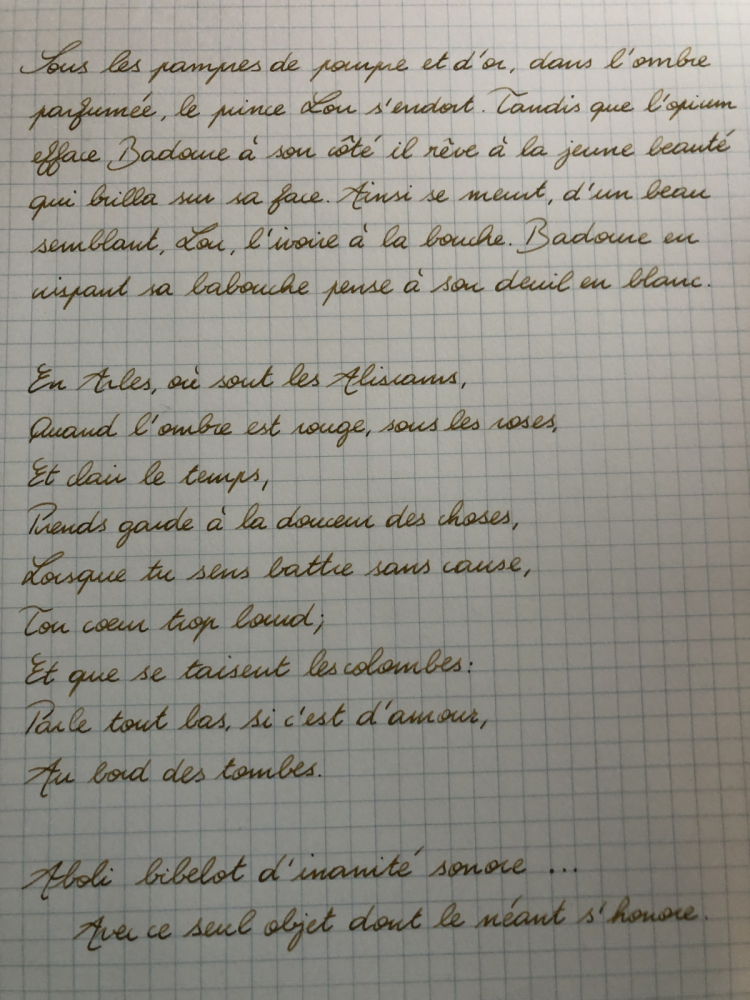 Sous les pampres de pourpre et d'or, dans l'ombre
parfumée, le prince Lou s'endort. Tandis que l'opium
efface Badoure à son côté il rêve à la jeune beauté
qui brilla sur sa face. Ainsi se meurt, d'un beau
semblant, Lou, l'ivoire à la bouche. Badoure en
crispant sa babouche pense à son deuil en blanc.
En Arles, où sont les Aliscams,
Quand l'ombre est rouge, sous les roses,
Et clair le temps,
Prends garde à la douceur des choses,
Lorsque tu sens battre sans cause,
Ton coeur trop lourd;
Et que se taisent les colombes:
Parle tout bas, si c'est d'amour,
Au bord des tombes.
Aboli bibelot d'inanité sonore ...
Avec ce seul objet dont le néant s'honore.